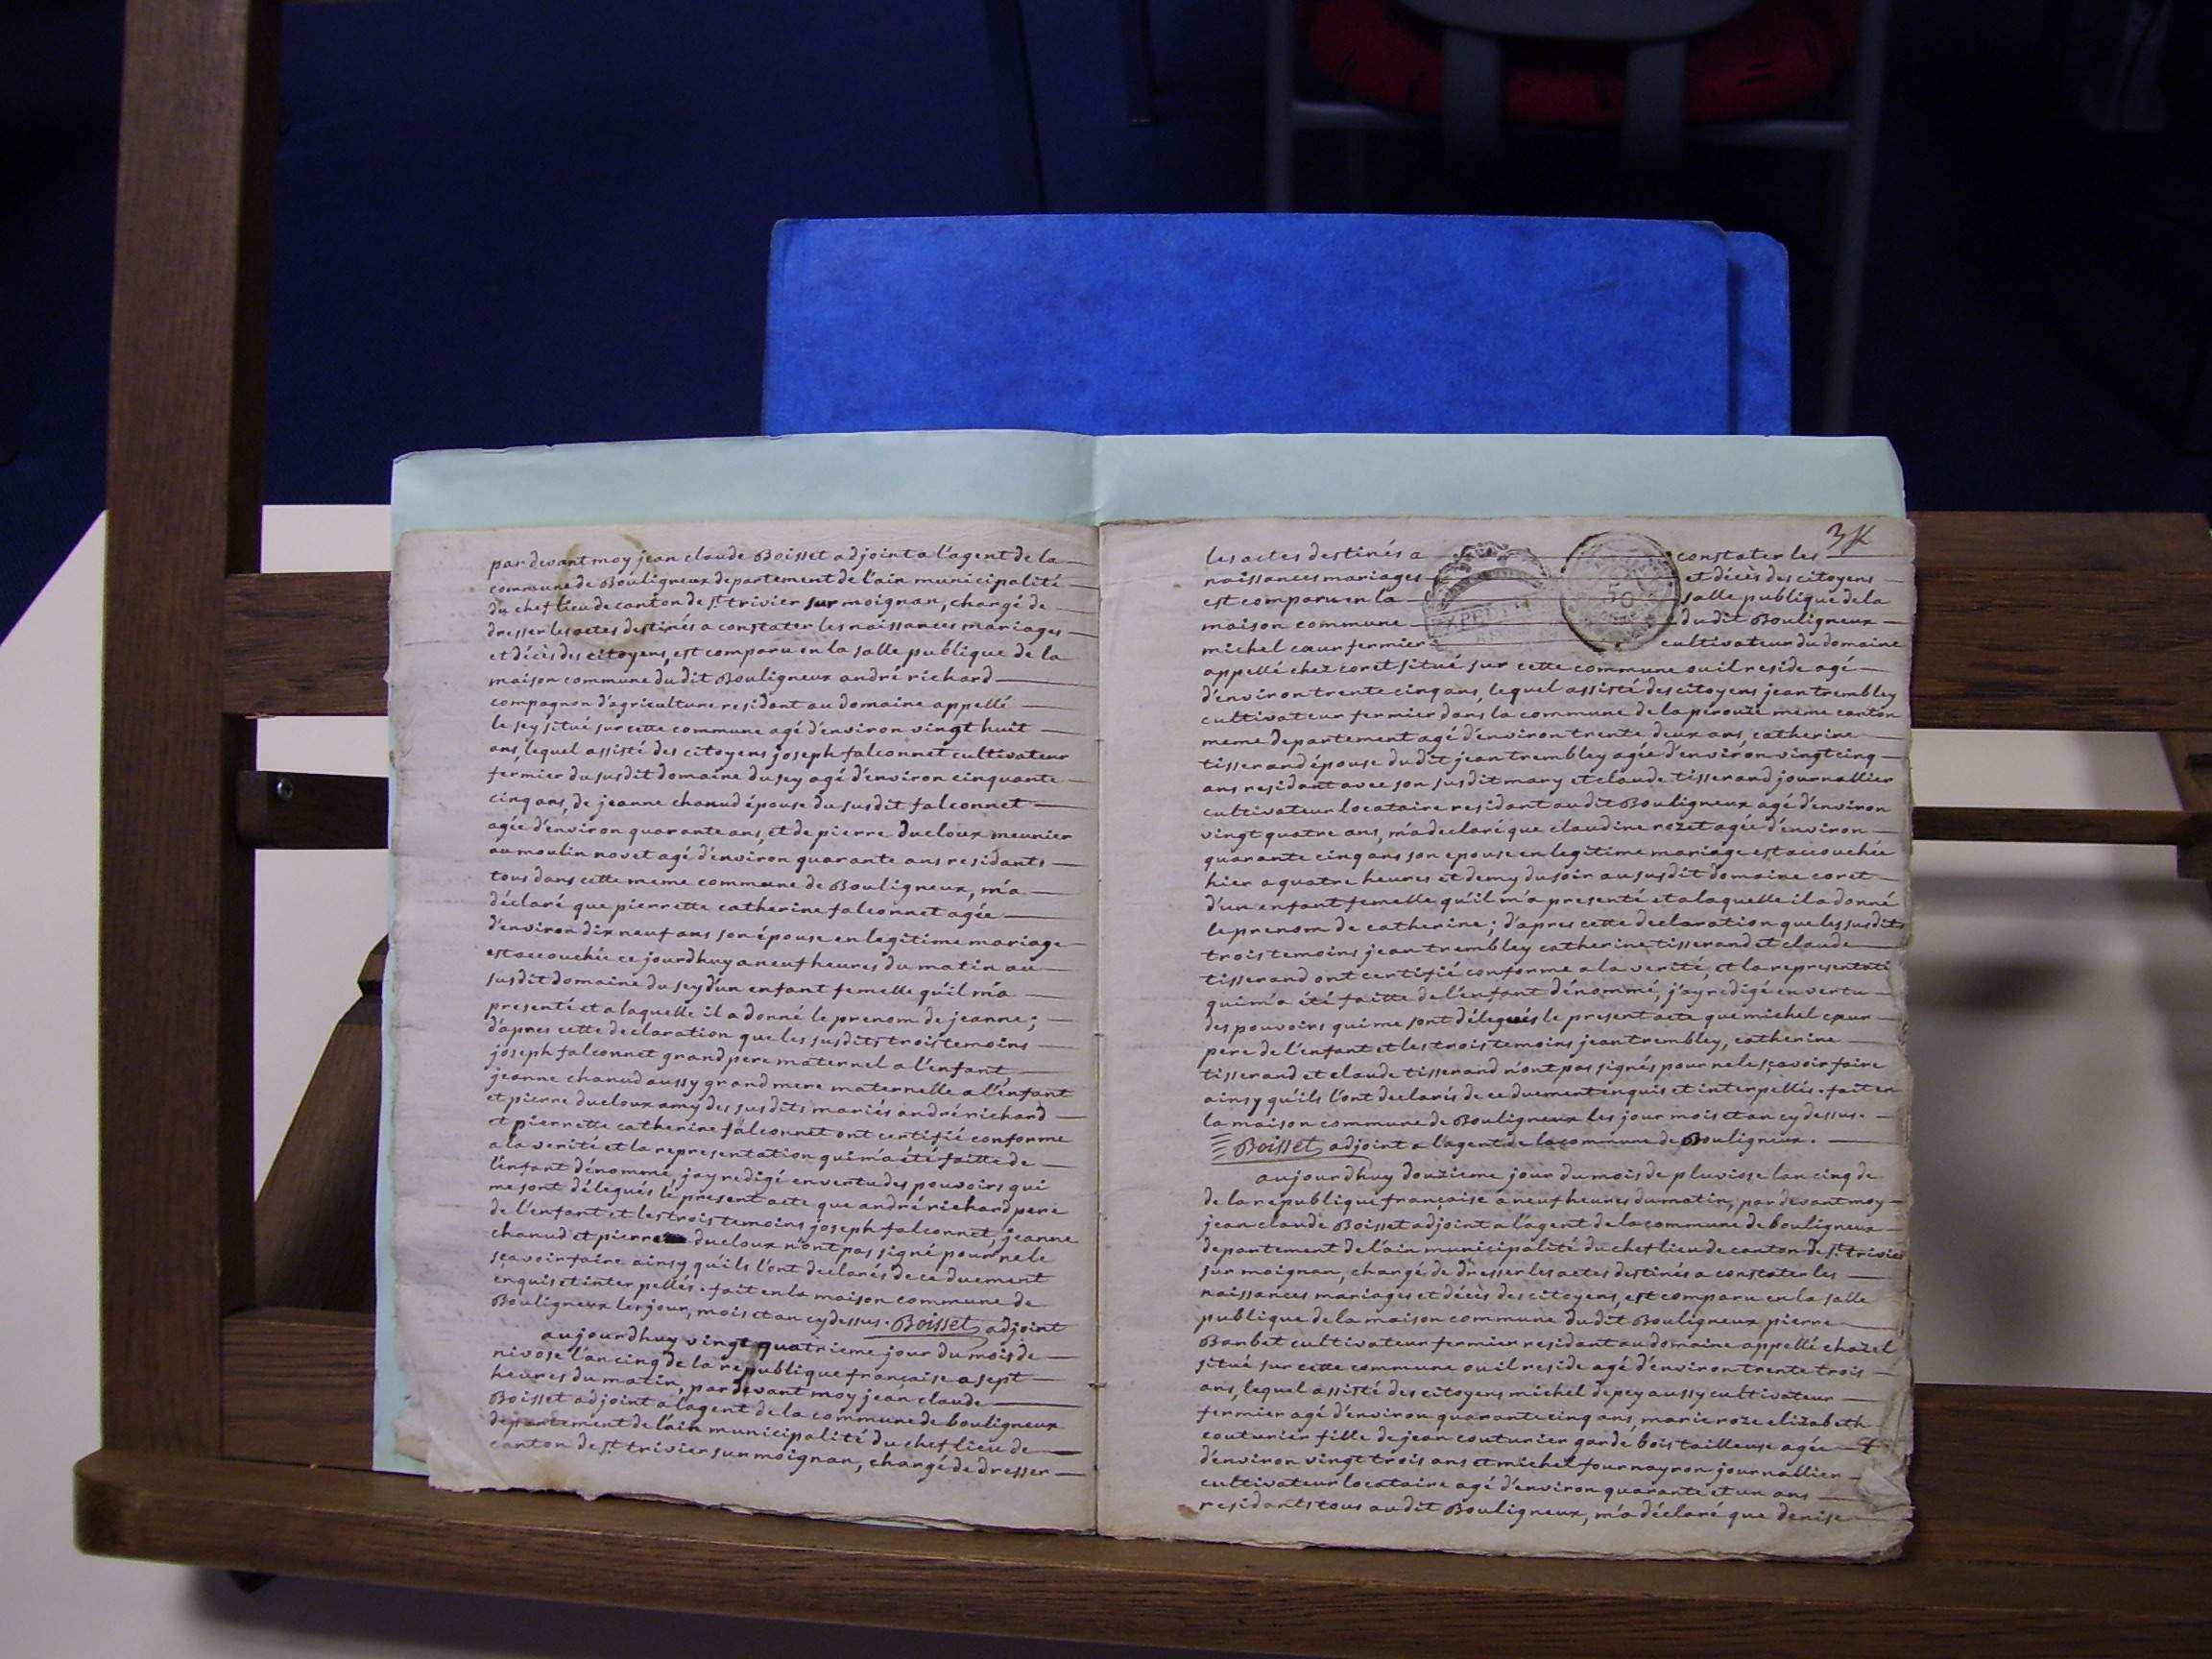 par devant moy jean claude Boisset adjoint a l'agent de la
commune de Bouligneux departement de l'ain municipalité
du chef lieu de canton de st trivier sur moignan, chargé de
dresser les actes destinés a constater les naissances mariages
et décès des citoyens, est comparu en la salle publique de la
maison commune dudit Bouligneux andré richard
compagnon d'agriculture residant au domaine appellé
le sey situé sur cette commune agé d'environ vingt huit
ans, lequel assisté des citoyens joseph falconnet cultivateur
fermier du susdit domaine du sey agé d'environ cinquante
cinq ans, de jeanne chanud épouse du susdit falconnet
agée d'environ quarante ans, et de pierre ducloux meunier
au moulin novet agé d'environ quarante ans residants
tous dans cette meme commune de Bouligneux, m'a
déclaré que pierrette catherine falconnet agée
d'environ dix neuf ans son épouse en legitime mariage
est accouchée ce jourdhuy a neuf heures du matin au
susdit domaine du sey d'un enfant femelle qu'il m'a
presenté et a laquelle il a donné le prenom de jeanne ;
d'apres cette declaration que les susdits trois temoins
joseph falconnet grand pere maternel a l'enfant
jeanne chanud aussy grand mere maternelle a l'enfant
et pierre ducloux amy des susdits mariés andré richard
et pierrette catherine falconnet ont certifié conforme
a la verité et la representation qui m'a été faitte de
l'enfant dénommé, j'ay redigé en vertu des pouvoirs qui
me sont délegués le present acte que andré richard pere
de l'enfant et les trois temoins joseph falconnet, jeanne
chanud et pierre ducloux n'ont pas signé pour ne le
sçavoir faire ainsy qu'ils l'ont declarés de ce duement
enquis et interpellés. fait en la maison commune de
Bouligneux les jour, mois et an cy dessus. Boisset adjoint
aujourdhuy vingt quatrieme jour du mois de
nivose l'an cinq de la republique française a sept
heures du matin, par devant moy jean claude
Boisset adjoint a l'agent de la commune de bouligneux
departement de l'ain municipalité du chef lieu de
canton de st trivier sur moignan, chargé de dresser
les actes destinés a constater les
naissances mariages et décès des citoyens
est comparu en la salle publique de la
maison commune dudit Bouligneux
michel cœur fermier cultivateur du domaine
appellé chez coret situé sur cette commune ou il reside agé
d'environ trente cinq ans, lequel assisté des citoyens jean trembley
cultivateur fermier dans la commune de la perouze meme canton
meme departement agé d'environ trente deux ans, catherine
tisserand épouse dudit jean trembley agée d'environ vingt cinq
ans residant avec son susdit mary et claude tisserand journallier
cultivateur locataire residant audit Bouligneux agé d'environ
vingt quatre ans, m'a declaré que claudine rozet agée d'environ
quarante cinq ans son epouse en legitime mariage est accouchée
hier a quatre heures et demy du soir au susdit domaine coret
d'un enfant femelle qu'il m'a presenté et a laquelle il a donné
le prenom de catherine ; d'apres cette declaration que les susdits
trois temoins jean trembley catherine tisserand et claude
tisserand ont certifié conforme a la verité, et la representati
qui m'a été faitte de l'enfant dénommé, j'ay redigé en vertu
des pouvoirs qui me sont délegués le present acte que michel cœur
pere de l'enfant et les trois temoins jean trembley, catherine
tisserand et claude tisserand n'ont pas signés pour ne le sçavoir faire
ainsy qu'ils l'ont declarés de ce duement enquis et interpellés. fait en
la maison commune de Bouligneux les jour mois et an cy dessus.
Boisset adjoint a l'agent de la commune de Bouligneux.
aujourdhuy douzieme jour du mois de pluviose lan cinq de
de la republique française a neuf heures du matin, par devant moy
jean claude Boisset adjoint a l'agent de la commune de bouligneux
departement de l'ain municipalité du chef lieu de canton de st trivier
sur moignan, chargé de dresser les actes destinés a constater les
naissances mariages et décès des citoyens, est comparu en la salle
publique de la maison commune dudit Bouligneux pierre
Barbet cultivateur fermier residant au domaine appellé chazel
situé sur cette commune ou il reside agé d'environ trente trois
ans, lequel assisté des citoyens michel depey aussy cultivateur
fermier agé d'environ quarante cinq ans, marie roze elizabeth
couturier fille de jean couturier garde bois tailleuse agée
d'environ vingt trois ans et michel fournayron journallier
cultivateur locataire agé d'environ quarante et un ans
residants tous audit Bouligneux, m'a déclaré que denise